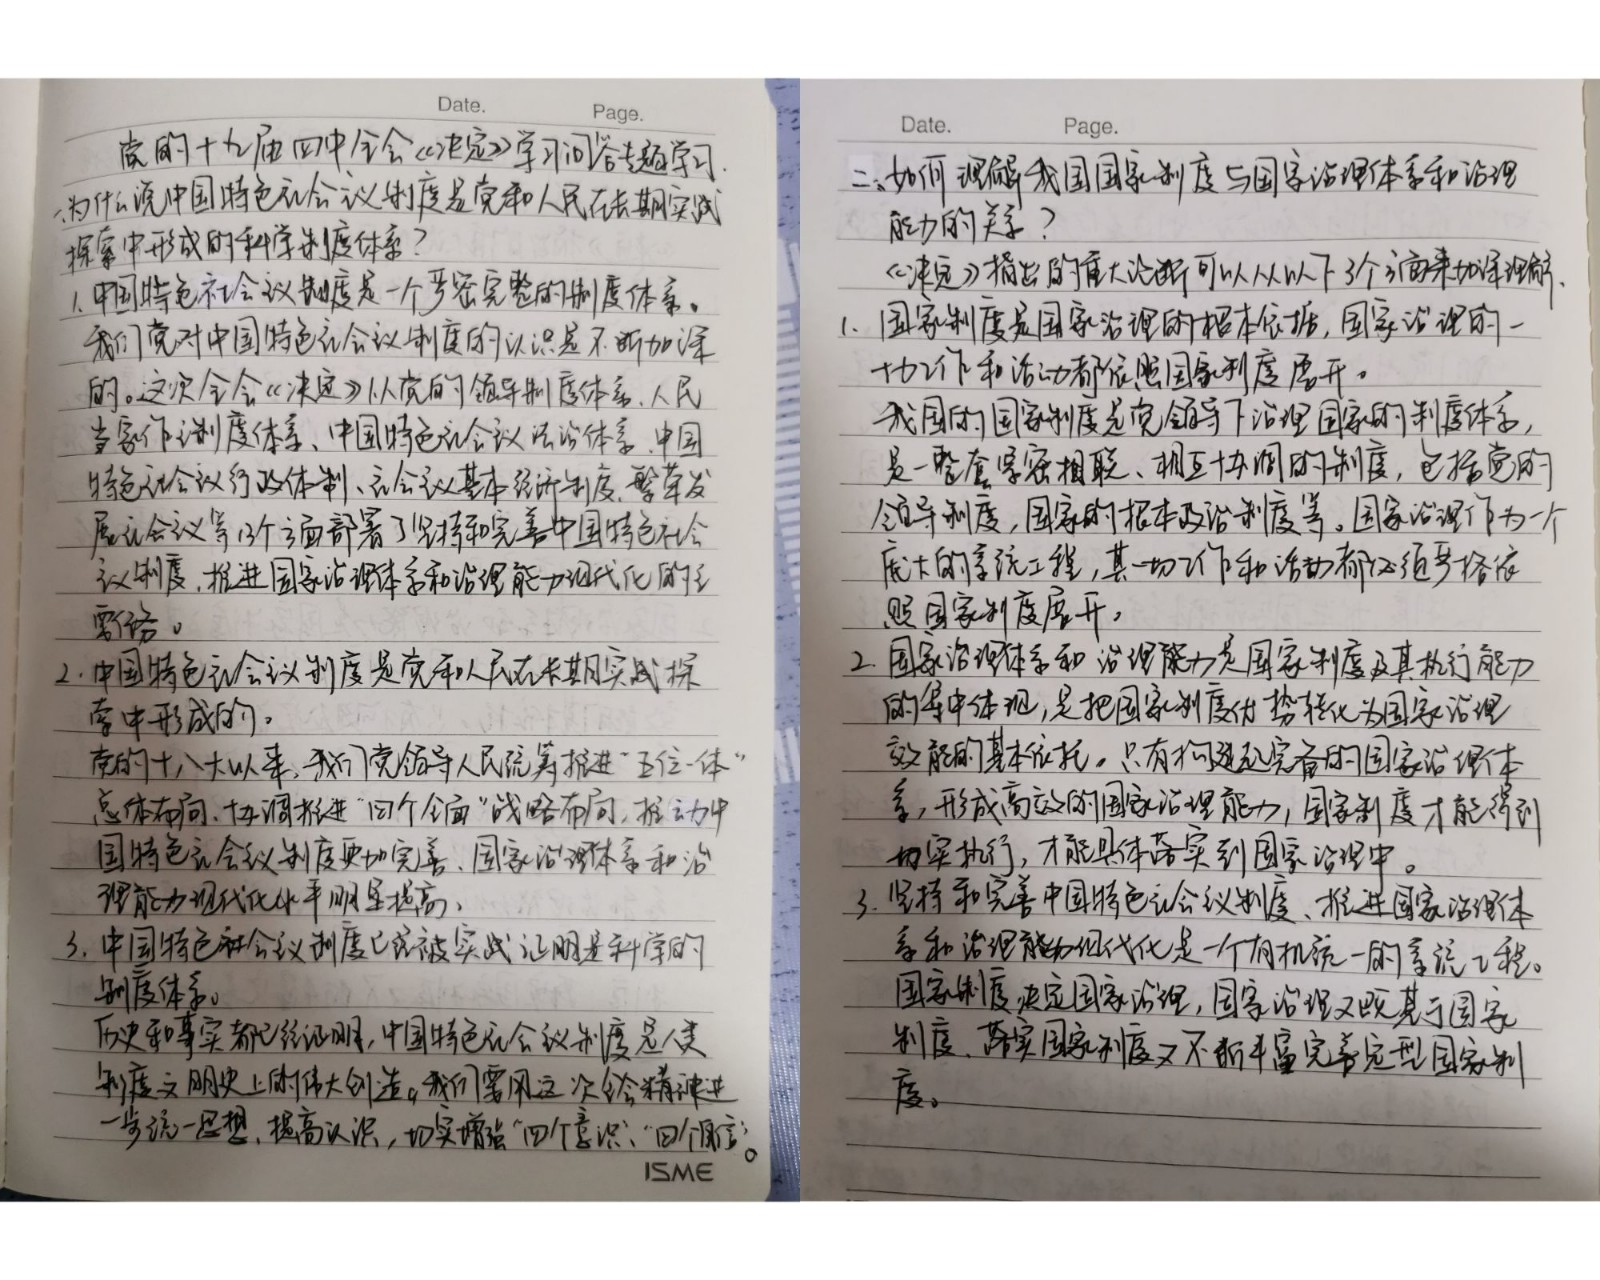 Date. Page.
党的十九届四中全会《决定》学习问答专题学习.
一、为什么说中国特色社会主义制度是党和人民在长期实践
探索中形成的科学制度体系？
1. 中国特色社会主义制度是一个严密完整的制度体系。
我们党对中国特色社会主义制度的认识是不断加深
的。这次全会《决定》从党的领导制度体系、人民
当家作主制度体系、中国特色社会主义法治体系、中国
特色社会主义行政体制、社会主义基本经济制度、繁荣发
展社会主义等13个方面部署了坚持和完善中国特色社会
主义制度、推进国家治理体系和治理能力现代化的主
要任务。
2. 中国特色社会主义制度是党和人民在长期实践探
索中形成的。
党的十八大以来，我们党领导人民统筹推进“五位一体”
总体布局、协调推进“四个全面”战略布局，推动中
国特色社会主义制度更加完善、国家治理体系和治
理能力现代化水平明显提高。
3. 中国特色社会主义制度已经被实践证明是科学的
制度体系。
历史和事实都已经证明，中国特色社会主义制度是人类
制度文明史上的伟大创造。我们要用这次全会精神进
一步统一思想、提高认识，切实增强“四个意识”、“四个自信”。
ISME
Date. Page.
二、如何理解我国国家制度与国家治理体系和治理
能力的关系？
《决定》指出的重大论断可以从以下3个方面来加深理解.
1. 国家制度是国家治理的根本依据，国家治理的一
切工作和活动都依照国家制度展开。
我国的国家制度是党领导下治理国家的制度体系，
是一整套紧密相联、相互协调的制度，包括党的
领导制度，国家的根本政治制度等。国家治理作为一个
庞大的系统工程，其一切工作和活动都必须严格依
照国家制度展开。
2. 国家治理体系和治理能力是国家制度及其执行能力
的集中体现，是把国家制度优势转化为国家治理
效能的基本依托。只有构建起完备的国家治理体
系，形成高效的国家治理能力，国家制度才能得到
切实执行，才能具体落实到国家治理中。
3. 坚持和完善中国特色社会主义制度、推进国家治理体
系和治理能力现代化是一个有机统一的系统工程。
国家制度决定国家治理，国家治理又既基于国家
制度、落实国家制度又不断丰富完善定型国家制
度。